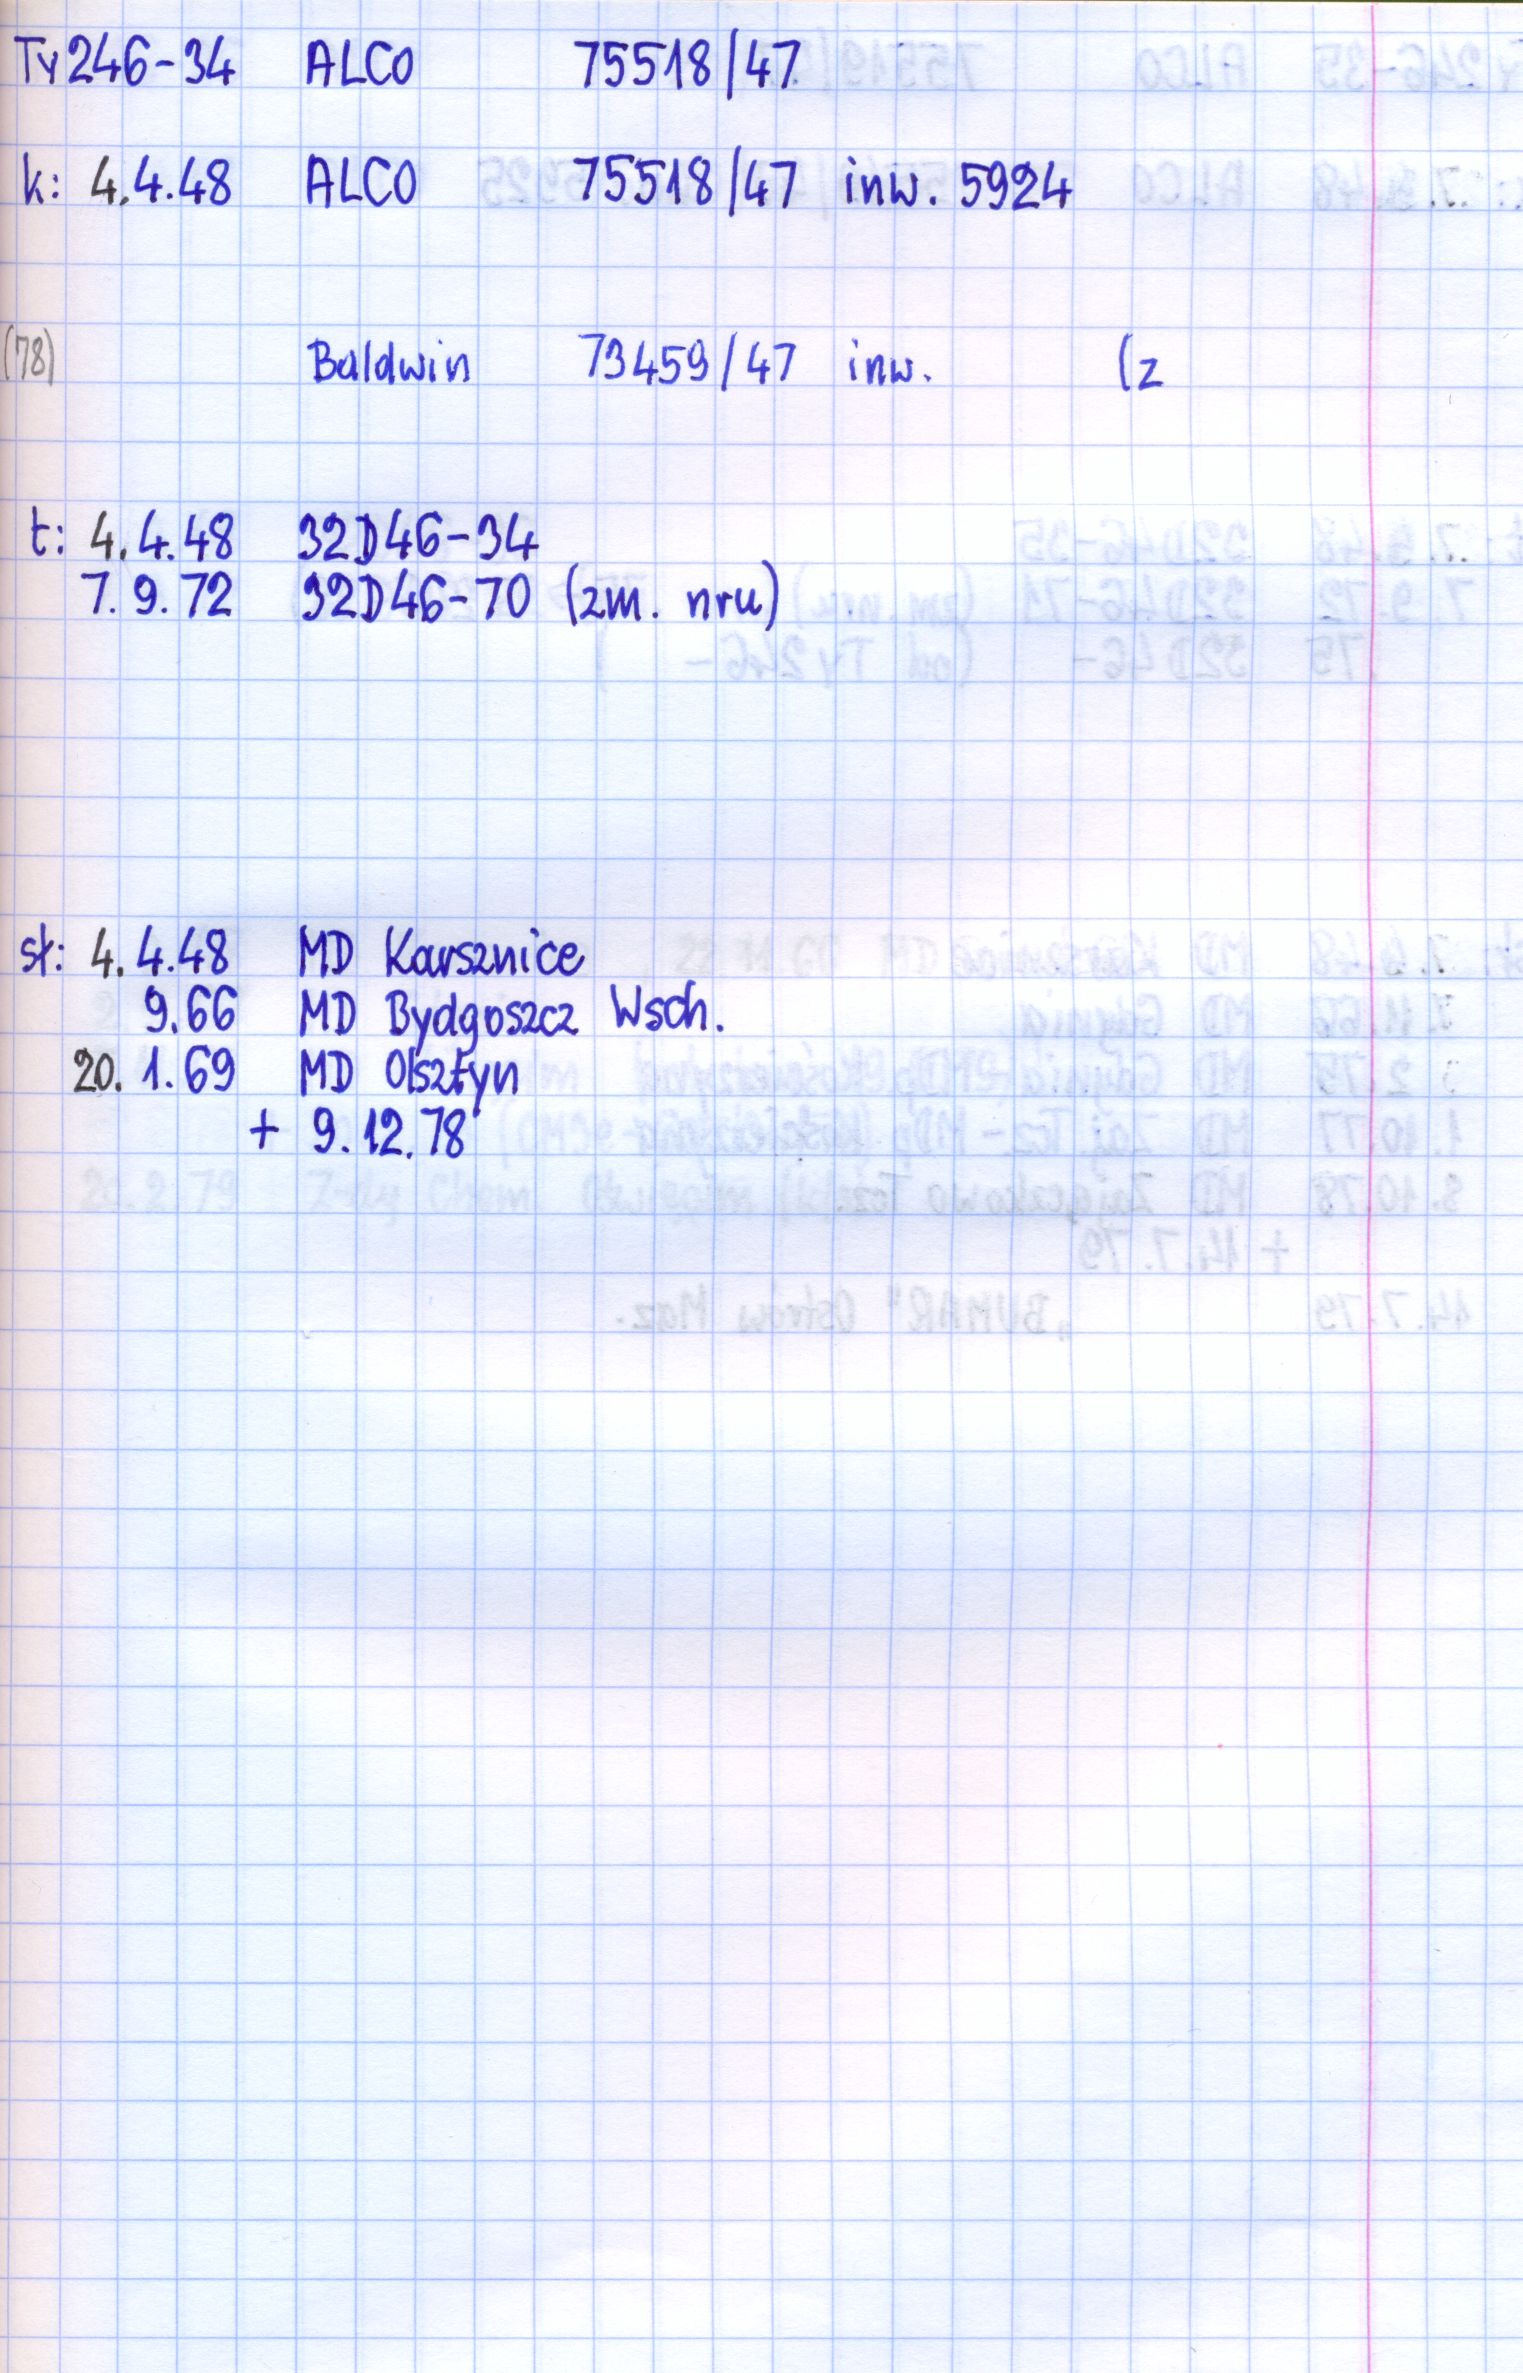 Ty246-34 ALCO 75518/47
k: 4.4.48 ALCO 75518/47 inw. 5924
(78) Baldwin 73459/47 inw. (z
t: 4.4.48 32D46-34
7.9.72 32D46-70 (zm. nru)
st: 4.4.48 MD Karsznice
9.66 MD Bydgoszcz Wsch.
20.1.69 MD Olsztyn
+ 9.12.78